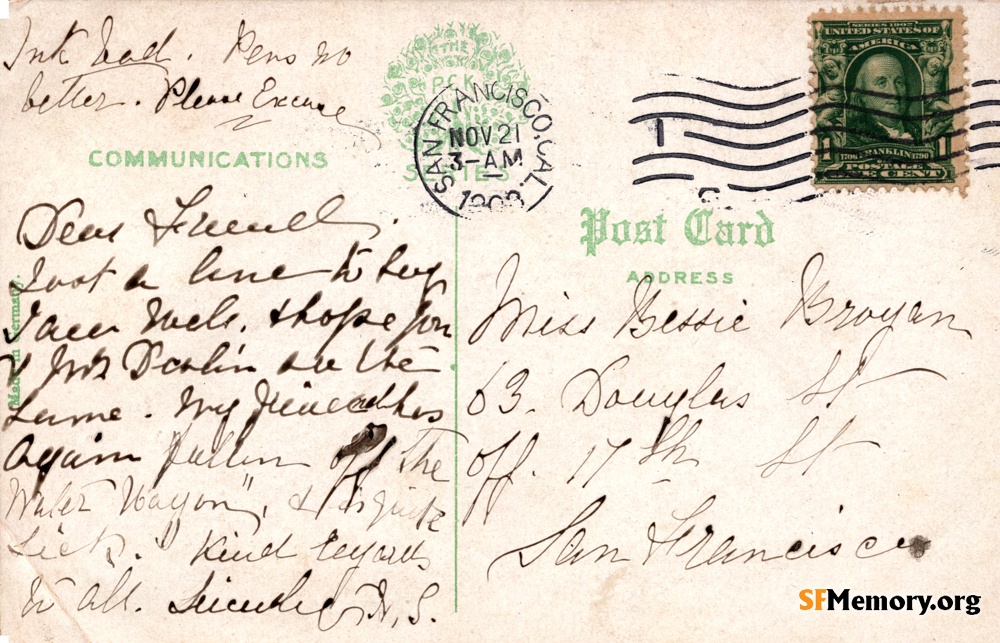 Ink bad. Pens no
better. Please Excuse
THE
P.C.K.
SERIES
SAN FRANCISCO, CAL.
NOV 21
3-AM
1908
1
SERIES 1902
UNITED STATES OF
AMERICA
1 1706 FRANKLIN 1790 1
POSTAGE
ONE CENT
COMMUNICATIONS
Post Card
ADDRESS
Made in Germany.
Dear Friend.
Just a line to say
I am well. & hope you
& Mrs Devlin are the
same. My friend has
again fallen off the
Water Wagon", & is quite
sick." Kind regards
to all. Sincerely H. S.
Miss Bessie Brogan
63. Douglas St
off. 17th St
San Francisco
SFMemory.org